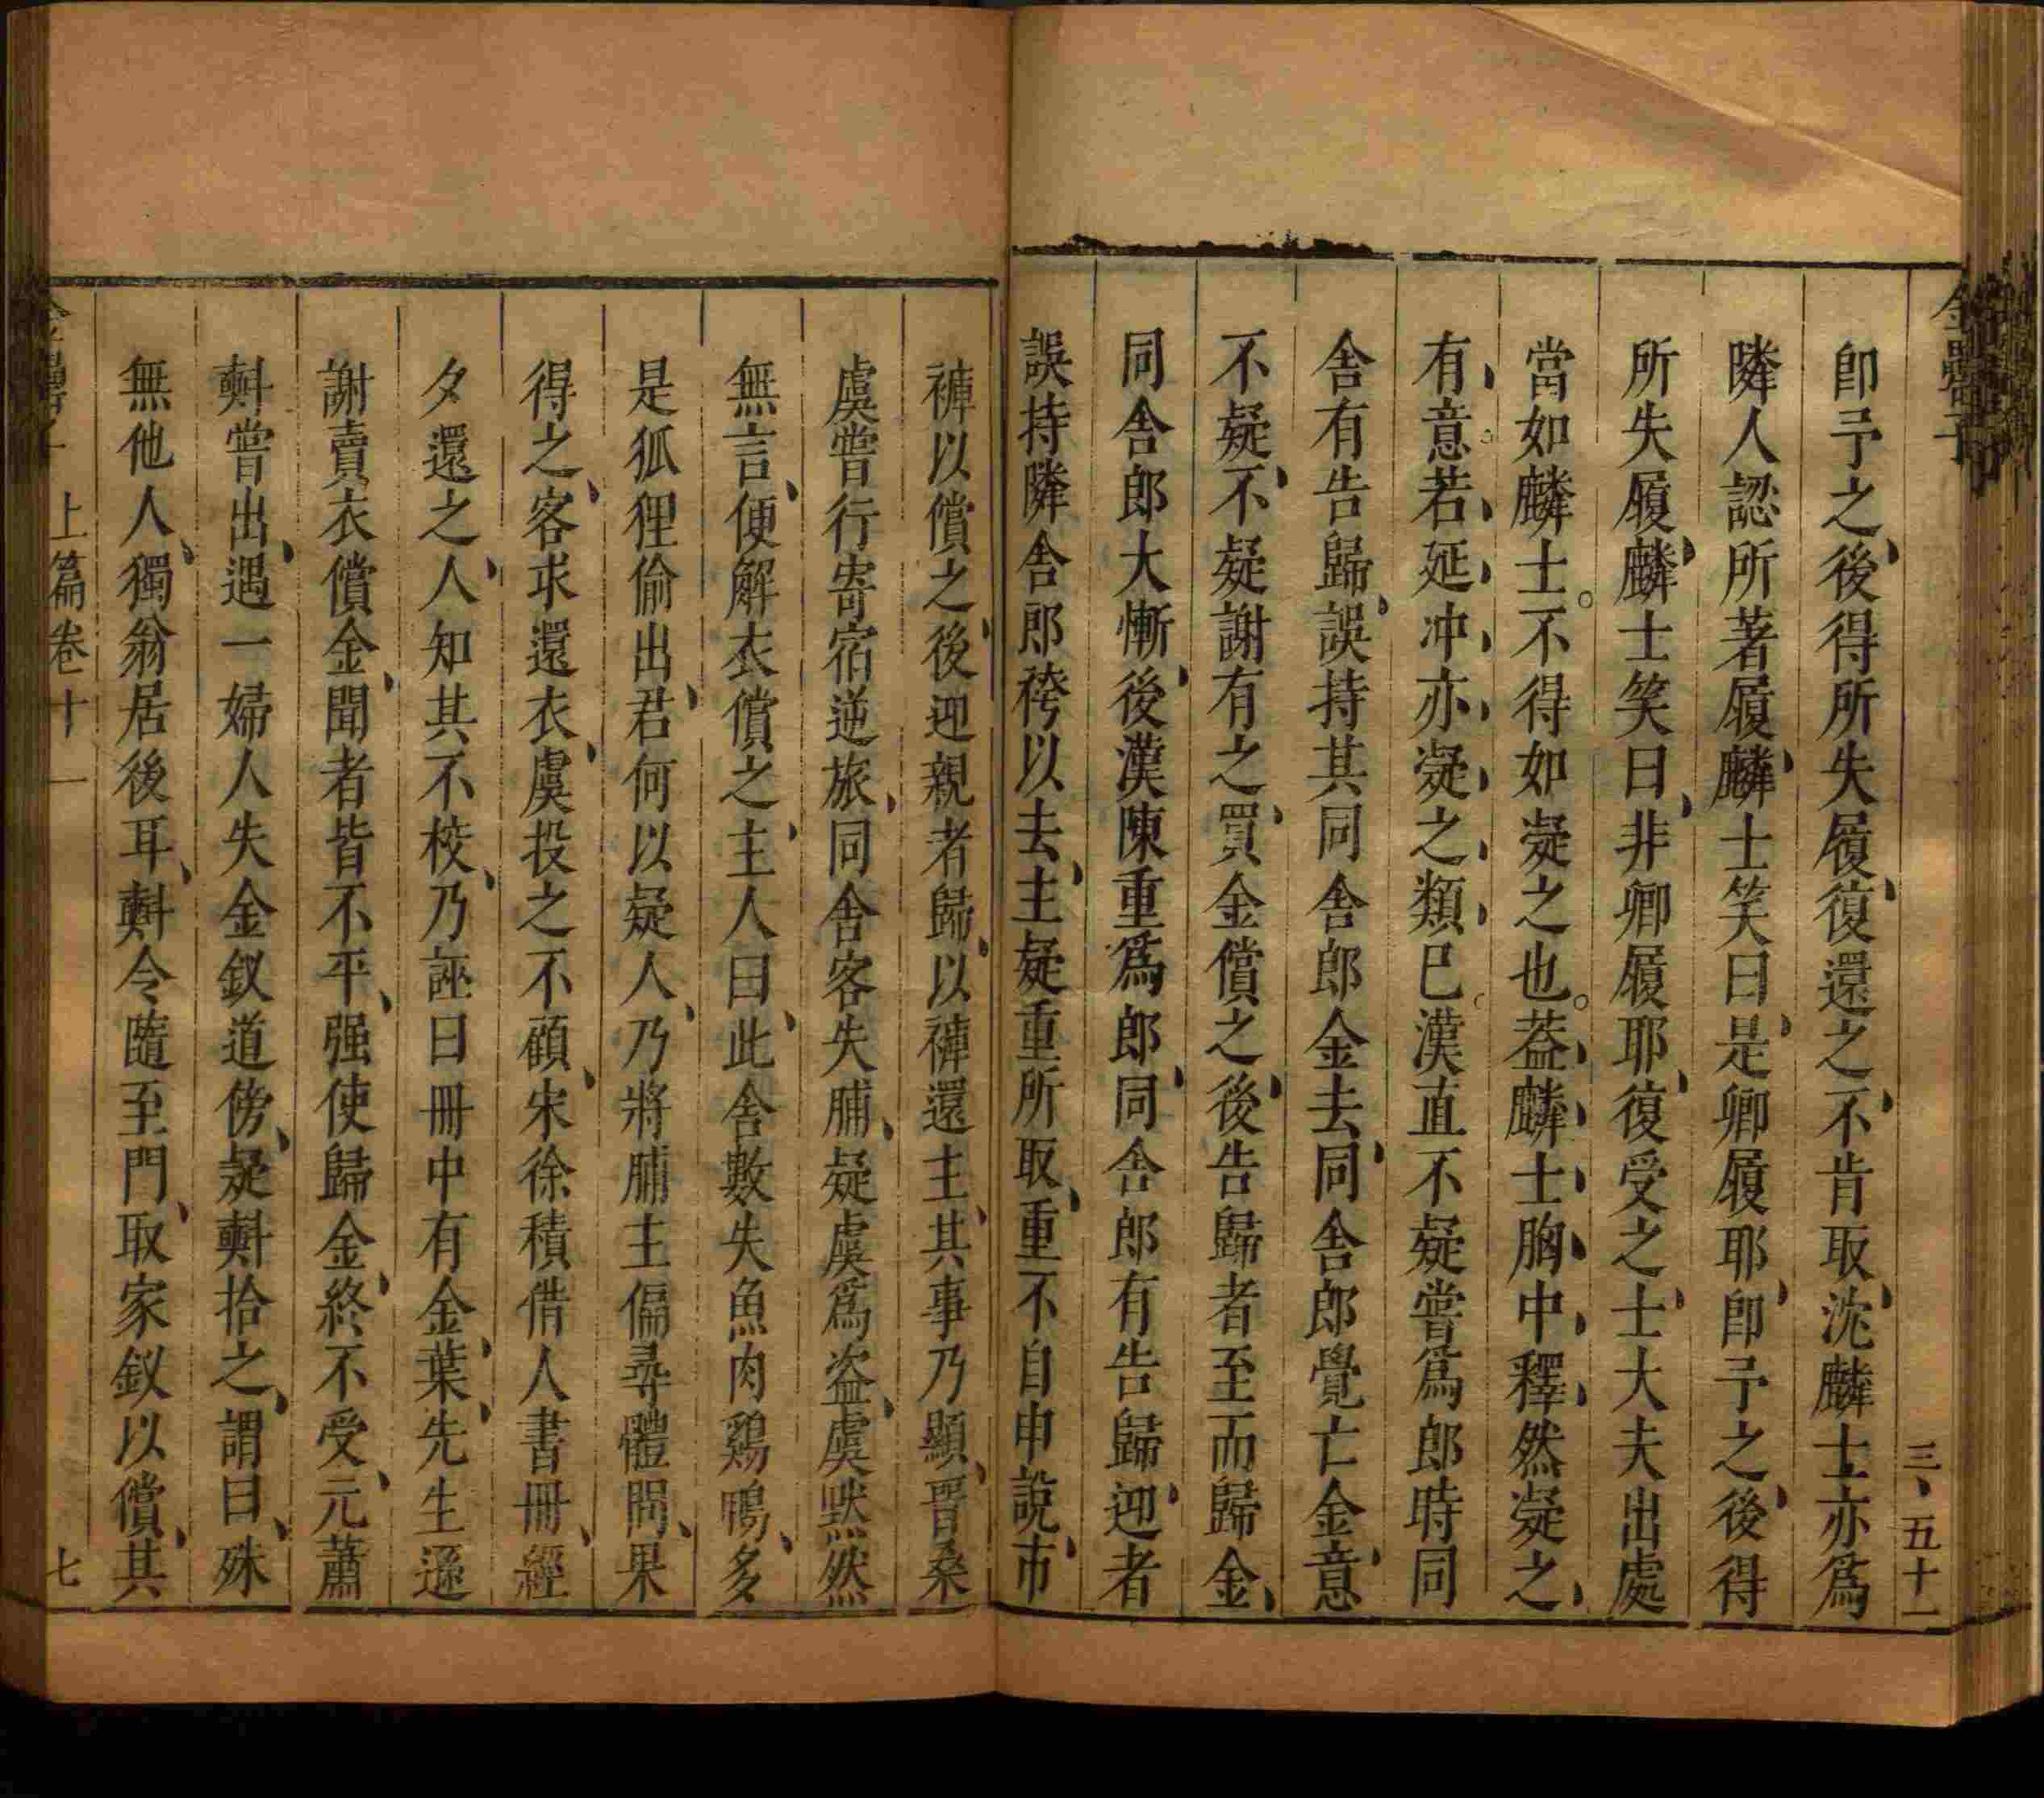 金罍子
三、五十一
卽予之、後得所失履、復還之、不肯取、沈麟士亦爲
隣人認所著履、麟士笑曰、是卿履耶、卽予之、後得
所失履、麟士笑曰、非卿履耶、復受之、士大夫出處
當如麟士。不得如凝之也。葢麟士胸中釋然凝之、
有意。若延冲亦凝之類巳。漢直不疑嘗爲郎時同
舍有告歸、誤持其同舍郎金去、同舍郎覺亡金、意
不疑、不疑謝有之、買金償之、後告歸者至而歸金、
同舍郎大慚、後漢陳重爲郎、同舍郎有告歸、迎者
誤持隣舍郎袴以去、主疑重所取、重不自申說、市
褲以償之、後迎親者歸、以褲還主、其事乃顯、晉桑
虞嘗行寄宿逆旅、同舍客失脯、疑虞爲盜、虞默然
無言、便解衣償之、主人曰、此舍數失魚肉鷄鴨、多
是狐狸偷出、君何以疑人、乃將脯主偏尋體問、果
得之、客求還衣、虞投之不顧、宋徐積借人書冊、經
夕還之、人知其不校、乃誣曰冊中有金葉、先生遜
謝賣衣償金、聞者皆不平、强使歸金、終不受、元蕭
㪺嘗出、遇一婦人失金釵道傍、疑㪺拾之、謂曰、殊
無他人、獨翁居後耳、㪺令隨至門、取家釵以償、其
上篇卷十一
七